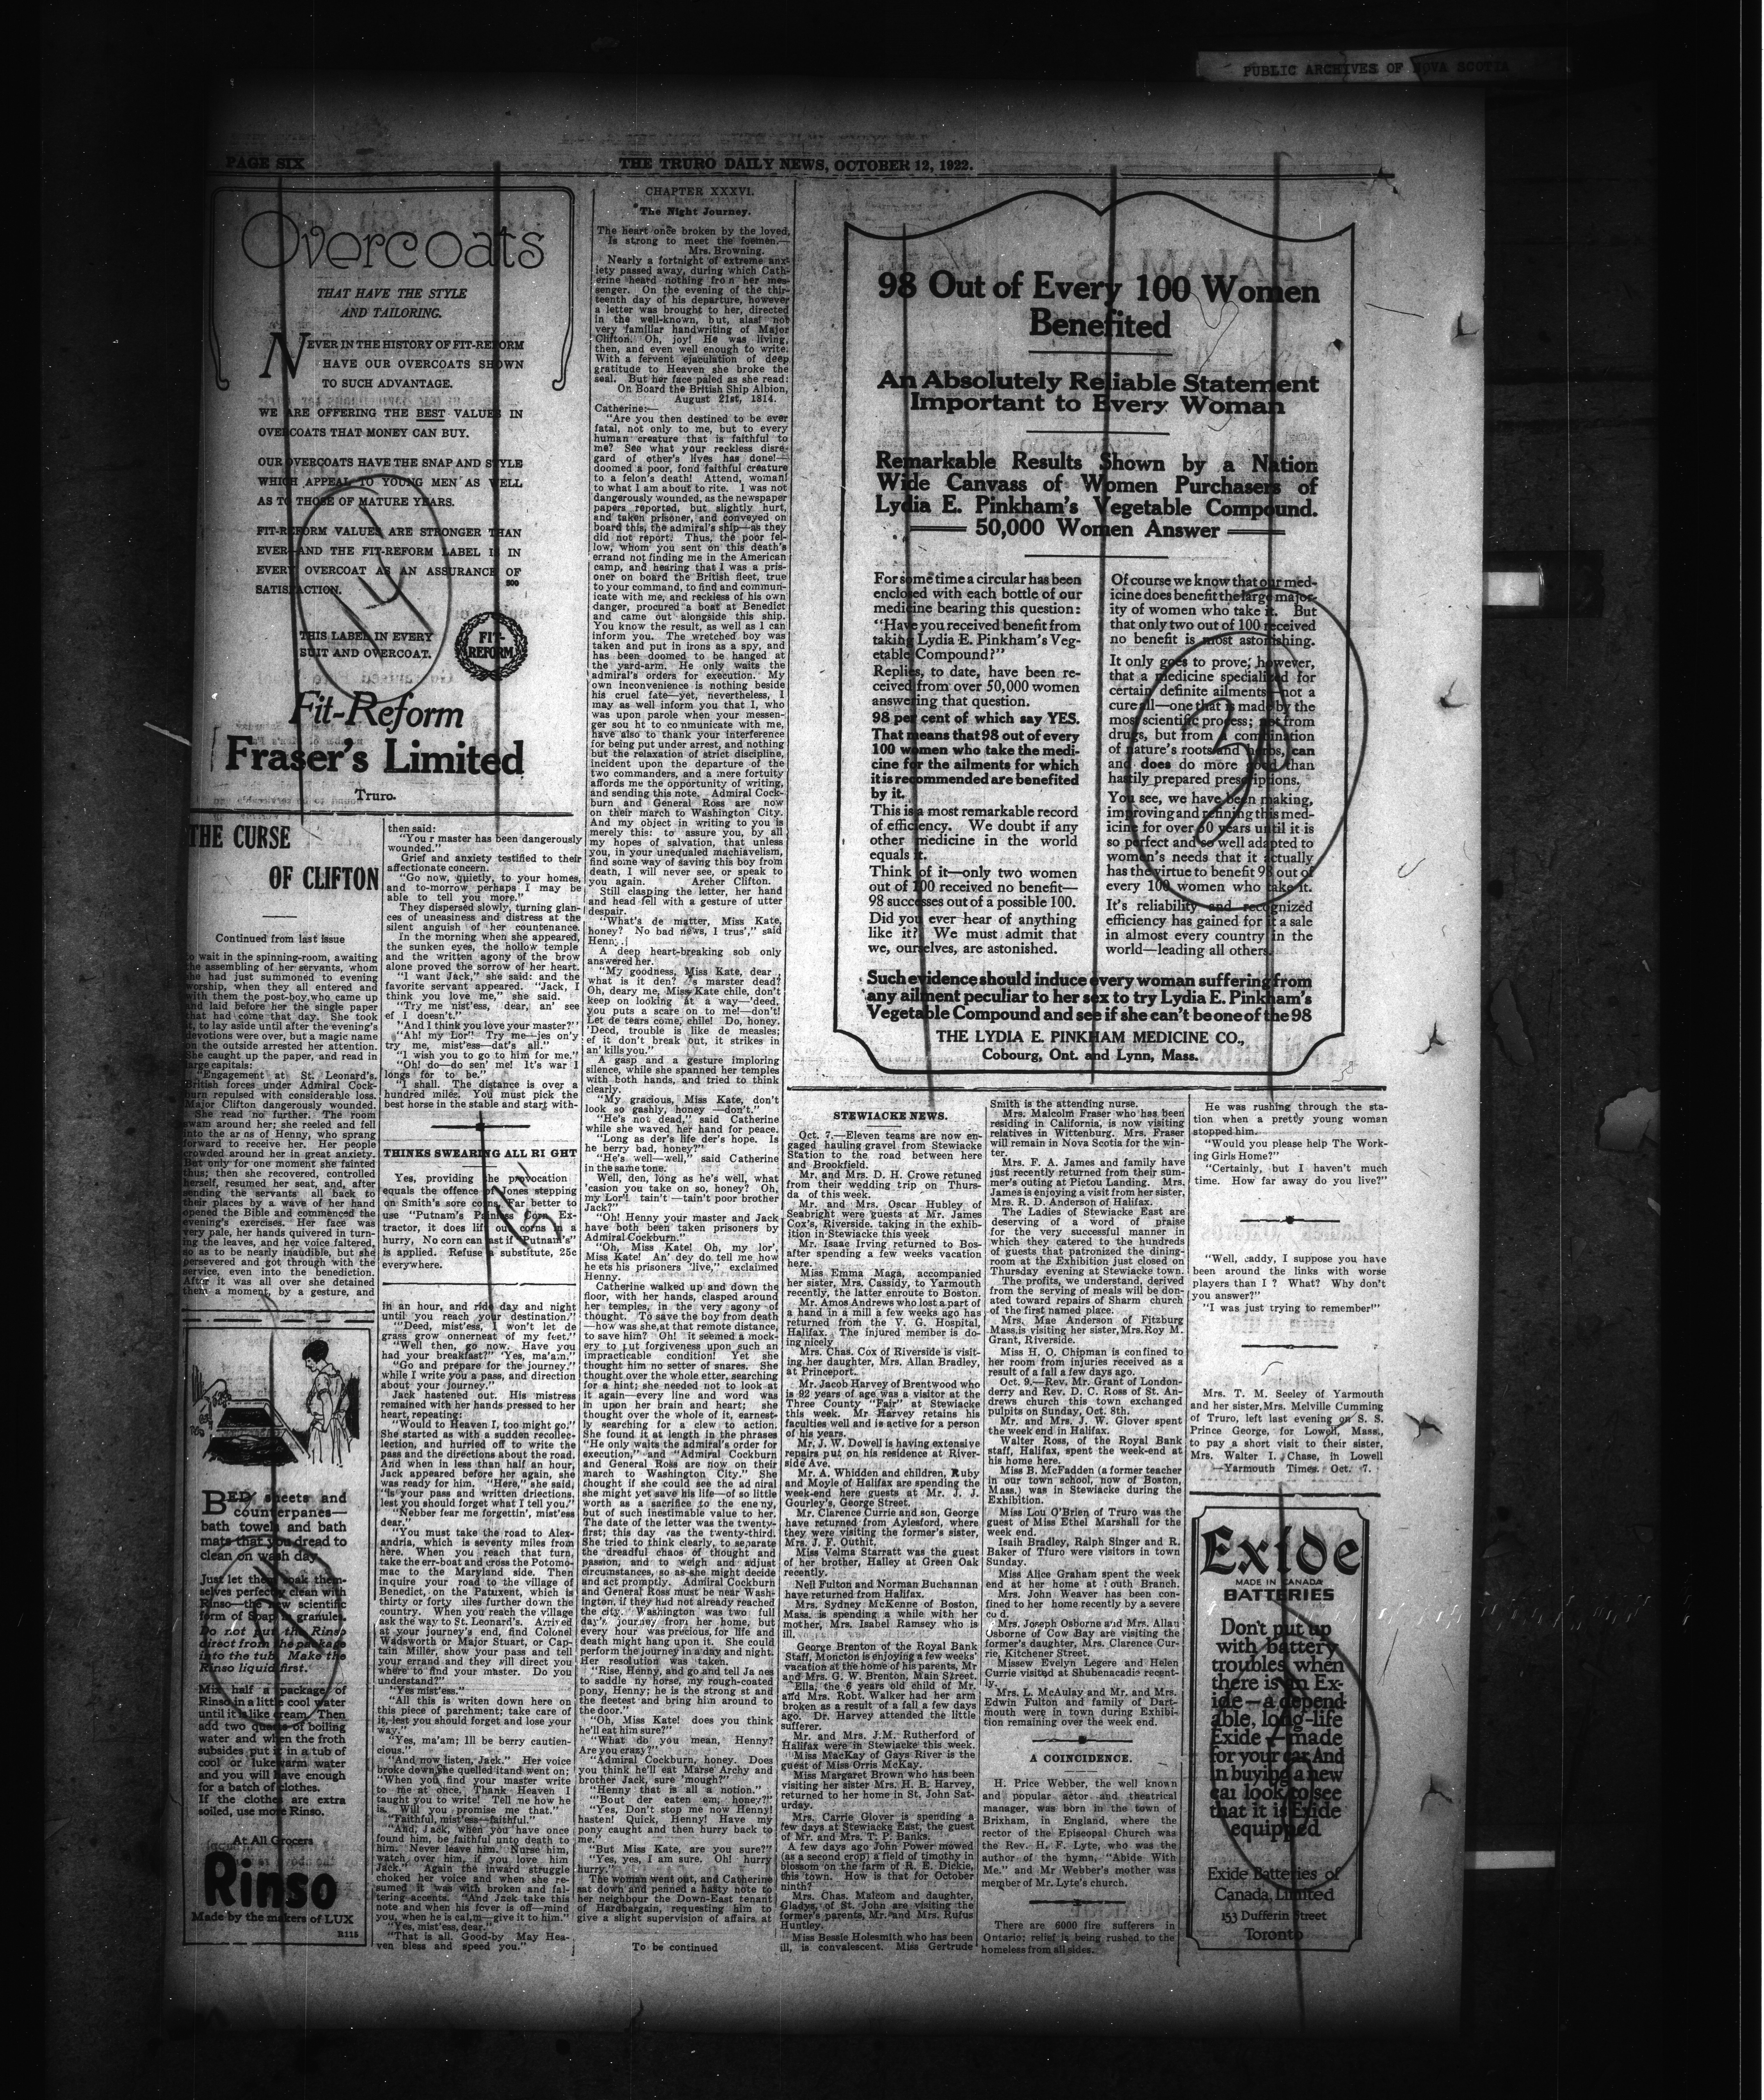 PUBLIC ARCHIVES OF NOVA SCOTIA
PAGE SIX
THE TRURO DAILY NEWS, OCTOBER 12, 1922.
Overcoats
THAT HAVE THE STYLE
AND TAILORING.
NEVER IN THE HISTORY OF FIT-REFORM
HAVE OUR OVERCOATS SHOWN
TO SUCH ADVANTAGE.
WE ARE OFFERING THE BEST VALUES IN
OVERCOATS THAT MONEY CAN BUY.
OUR OVERCOATS HAVE THE SNAP AND STYLE
WHICH APPEAL TO YOUNG MEN AS WELL
AS TO THOSE OF MATURE YEARS.
FIT-REFORM VALUES ARE STRONGER THAN
EVER AND THE FIT-REFORM LABEL IS IN
EVERY OVERCOAT AS AN ASSURANCE OF
SATISFACTION.
500
THIS LABEL IN EVERY
SUIT AND OVERCOAT.
FIT-
REFORM
Fit-Reform
Fraser's Limited
Truro.
THE CURSE
OF CLIFTON
Continued from last issue
to wait in the spinning-room, awaiting
the assembling of her servants, whom
she had just summoned to evening
worship, when they all entered and
with them the post-boy, who came up
and laid before her the single paper
that had come that day. She took
it, to lay aside until after the evening's
devotions were over, but a magic name
on the outside arrested her attention.
She caught up the paper, and read in
large capitals:
"Engagement at St. Leonard's.
British forces under Admiral Cock-
burn repulsed with considerable loss.
Major Clifton dangerously wounded.
She read no further. The room
swam around her; she reeled and fell
into the arms of Henny, who sprang
forward to receive her. Her people
crowded around her in great anxiety.
But only for one moment she fainted
thus; then she recovered, controlled
herself, resumed her seat, and, after
sending the servants all back to
their places by a wave of her hand
opened the Bible and commenced the
evening's exercises. Her face was
very pale, her hands quivered in turn-
ing the leaves, and her voice faltered,
so as to be nearly inaudible, but she
persevered and got through with the
service, even into the benediction.
After it was all over she detained
them a moment, by a gesture, and
BED sheets and
counterpanes—
bath towels and bath
mats that you dread to
clean on wash day.
Just let them soak them-
selves perfectly clean with
Rinso—the new scientific
form of Soap in granules.
Do not put the Rinso
direct from the package
into the tub. Make the
Rinso liquid first.
Mix half a package of
Rinso in a little cool water
until it is like cream. Then
add two quarts of boiling
water and when the froth
subsides put it in a tub of
cool or lukewarm water
and you will have enough
for a batch of clothes.
If the clothes are extra
soiled, use more Rinso.
At All Grocers
Rinso
Made by the makers of LUX
R115
then said:
"You r master has been dangerously
wounded."
Grief and anxiety testified to their
affectionate concern.
"Go now, quietly, to your homes,
and to-morrow perhaps I may be
able to tell you more."
They dispersed slowly, turning glan-
ces of uneasiness and distress at the
silent anguish of her countenance.
In the morning when she appeared,
the sunken eyes, the hollow temple
and the written agony of the brow
alone proved the sorrow of her heart.
"I want Jack," she said: and the
favorite servant appeared. "Jack, I
think you love me," she said.
"Try me mist'ess, dear, an' see
ef I doesn't."
"And I think you love your master?"
"Ah! my Lor'! Try me—jes on'y
try me, mist'ess—dat's all."
"I wish you to go to him for me."
"Oh! do—do sen' me! It's war I
longs for to be."
"I shall. The distance is over a
hundred miles. You must pick the
best horse in the stable and start with-
THINKS SWEARING ALL RI GHT
Yes, providing the provocation
equals the offence of Jones stepping
on Smith's sore corns. Far better to
use "Putnam's Painless Corn Ex-
tractor, it does lift out corns in a
hurry, No corn can last if "Putnam's"
is applied. Refuse a substitute, 25c
everywhere.
in an hour, and ride day and night
until you reach your destination."
"'Deed, mist'ess, I won't let de
grass grow onnerneat of my feet."
"Well then, go now. Have you
had your breakfast?" "Yes, ma'am."
"Go and prepare for the journey."
while I write you a pass, and direction
about your journey."
Jack hastened out. His mistress
remained with her hands pressed to her
heart, repeating:
"Would to Heaven I, too might go."
She started as with a sudden recollec-
lection, and hurried off to write the
pass and the directions about the road.
And when in less than half an hour,
Jack appeared before her again, she
was ready for him. "Here," she said,
"is your pass and written driections,
lest you should forget what I tell you."
"Nebber fear me forgettin', mist'ess
dear."
"You must take the road to Alex-
andria, which is seventy miles from
here. When you reach that turn,
take the err-boat and cross the Potomo-
mac to the Maryland side. Then
inquire your road to the village of
Benedict, on the Patuxent, which is
thirty or forty iles further down the
country. When you reach the village
ask the way to St. Leonard's. Arrived
at your journey's end, find Colonel
Wadsworth or Major Stuart, or Cap-
tain Miller, show your pass and tell
your errand and they will direct you
where to find your master. Do you
understand?"
"Yes mist'ess."
"All this is writen down here on
this piece of parchment; take care of
it, lest you should forget and lose your
way."
"Yes, ma'am; Ill be berry cautien-
cious."
"And now listen, Jack." Her voice
broke down, she quelled itand went on;
"When you find your master write
to me at once. Thank Heaven I
taught you to write! Tell me how he
is. Will you promise me that."
"Faithful, mist'ess—faithful."
"And, Jack, when you have once
found him, be faithful unto death to
him. Never leave him. Nurse him,
watch over him, if you love him
Jack." Again the inward struggle
choked her voice and when she re-
sumed it was with broken and fal-
tering accents. "And Jack take this
note and when his fever is off—mind
you, when he is calm—give it to him."
"Yes, mist'ess, dear."
"That is all. Good-by May Hea-
ven bless and speed you."
CHAPTER XXXVI.
The Night Journey.
The heart once broken by the loved,
Is strong to meet the foemen.—
Mrs. Browning.
Nearly a fortnight of extreme anx-
iety passed away, during which Cath-
erine heard nothing from her mes-
senger. On the evening of the thir-
teenth day of his departure, however
a letter was brought to her, directed
in the well-known, but, alas! not
very familiar handwriting of Major
Clifton. Oh, joy! He was living,
then, and even well enough to write.
With a fervent ejaculation of deep
gratitude to Heaven she broke the
seal. But her face paled as she read:
On Board the British Ship Albion,
August 21st, 1814.
Catherine:—
"Are you then destined to be ever
fatal, not only to me, but to every
human creature that is faithful to
me? See what your reckless disre-
gard of other's lives has done!—
doomed a poor, fond faithful creature
to a felon's death! Attend, woman!
to what I am about to rite. I was not
dangerously wounded, as the newspaper
papers reported, but slightly hurt,
and taken prisoner, and conveyed on
board this, the admiral's ship—as they
did not report. Thus, the poor fel-
low, whom you sent on this death's
errand not finding me in the American
camp, and hearing that I was a pris-
oner on board the British fleet, true
to your command, to find and commun-
icate with me, and reckless of his own
danger, procured a boat at Benedict
and came out alongside this ship.
You know the result, as well as I can
inform you. The wretched boy was
taken and put in irons as a spy, and
has been doomed to be hanged at
the yard-arm. He only waits the
admiral's orders for execution. My
own inconvenience is nothing beside
his cruel fate—yet, nevertheless, I
may as well inform you that I, who
was upon parole when your messen-
ger sou ht to communicate with me,
have also to thank your interference
for being put under arrest, and nothing
but the relaxation of strict discipline,
incident upon the departure of the
two commanders, and a mere fortuity
affords me the opportunity of writing,
and sending this note. Admiral Cock-
burn and General Ross are now
on their march to Washington City.
And my object in writing to you is
merely this: to assure you, by all
my hopes of salvation, that unless
you, in your unequaled machiavelism,
find some way of saving this boy from
death, I will never see, or speak to
you again. Archer Clifton.
Still clasping the letter, her hand
and head fell with a gesture of utter
despair.
"What's de matter, Miss Kate,
honey? No bad news, I trus'," said
Henny.
A deep heart-breaking sob only
answered her.
"My goodness, Miss Kate, dear
what is it den? s marster dead?
Oh, deary me, Miss Kate chile, don't
keep on looking at a way—'deed,
you puts a scare on to me!—don't!
Let de tears come, chile! Do, honey.
'Deed, trouble is like de measles;
ef it don't break out, it strikes in
an' kills you."
A gasp and a gesture imploring
silence, while she spanned her temples
with both hands, and tried to think
clearly.
"My gracious, Miss Kate, don't
look so gashly, honey —don't."
"He's not dead," said Catherine
while she waved her hand for peace.
"Long as der's life der's hope. Is
he berry bad, honey?"
"He's well—well," said Catherine
in the same tone.
Well, den, long as he's well, what
'casion you take on so, honey? Oh,
my Lor'! tain't—tain't poor brother
Jack?"
"Oh! Henny your master and Jack
have both been taken prisoners by
Admiral Cockburn."
"Oh, Miss Kate! Oh, my lor',
Miss Kate! An' dey do tell me how
he ets his prisoners 'live," exclaimed
Henny.
Catherine walked up and down the
floor, with her hands, clasped around
her temples, in the very agony of
thought. To save the boy from death
—how was she, at that remote distance,
to save him? Oh! it seemed a mock-
ery to put forgiveness upon such an
impracticable condition! Yet she
thought him no setter of snares. She
thought over the whole etter, searching
for a hint; she needed not to look at
it again—every line and word was
in upon her brain and heart; she
thought over the whole of it, earnest-
ly searching for a clew to action.
She found it at length in the phrases
"He only waits the admiral's order for
execution," and "Admiral Cockburn
and General Ross are now on their
march to Washington City." She
thought if she could see the ad niral
she might yet save his life—of so little
worth as a sacrifice to the enemy,
but of such inestimable value to her.
The date of the letter was the twenty-
first; this day was the twenty-third.
She tried to think clearly, to separate
the dreadful chaos of thought and
passion, and to weigh and adjust
circumstances, so as she might decide
and act promptly. Admiral Cockburn
and General Ross must be near Wash-
ington, if they had not already reached
the city. Washington was two full
day's journey from her home, but
every hour was precious, for life and
death might hang upon it. She could
perform the journey in a day and night.
Her resolution was taken.
"Rise, Henny, and go and tell Ja nes
to saddle ny horse, my rough-coated
pony, Henny; he is the strong st and
the fleetest and bring him around to
the door."
"Oh, Miss Kate! does you think
he'll eat him sure?"
"What do you mean, Henny?
Are you crazy?"
"Admiral Cockburn, honey. Does
you think he'll eat Marse Archy and
brother Jack, sure 'nough?"
"Henny that is all a notion."
"'Bout der eaten em, honey?"
"Yes, Don't stop me now Henny!
hasten! Quick, Henny! Have my
pony caught and then hurry back to
me."
"But Miss Kate, are you sure?"
"Yes, yes, I am sure. Oh! hurry
hurry."
The woman went out, and Catherine
sat down and penned a hasty note to
her neighbour the Down-East tenant
of Hardbargain, requesting him to
give a slight supervision of affairs at
To be continued
98 Out of Every 100 Women
Benefited
An Absolutely Reliable Statement
Important to Every Woman
Remarkable Results Shown by a Nation
Wide Canvass of Women Purchasers of
Lydia E. Pinkham's Vegetable Compound.
50,000 Women Answer
For some time a circular has been
enclosed with each bottle of our
medicine bearing this question:
"Have you received benefit from
taking Lydia E. Pinkham's Veg-
etable Compound?"
Replies, to date, have been re-
ceived from over 50,000 women
answering that question.
98 per cent of which say YES.
That means that 98 out of every
100 women who take the medi-
cine for the ailments for which
it is recommended are benefited
by it.
This is a most remarkable record
of efficiency. We doubt if any
other medicine in the world
equals it.
Think of it—only two women
out of 100 received no benefit—
98 successes out of a possible 100.
Did you ever hear of anything
like it? We must admit that
we, ourselves, are astonished.
Of course we know that our med-
icine does benefit the large major-
ity of women who take it. But
that only two out of 100 received
no benefit is most astonishing.
It only goes to prove, however,
that a medicine specialized for
certain definite ailments—not a
cure all—one that is made by the
most scientific process; not from
drugs, but from a combination
of nature's roots and herbs, can
and does do more good than
hastily prepared prescriptions.
You see, we have been making,
improving and refining this med-
icine for over 50 years until it is
so perfect and so well adapted to
women's needs that it actually
has the virtue to benefit 98 out of
every 100 women who take it.
It's reliability and recognized
efficiency has gained for it a sale
in almost every country in the
world—leading all others.
Such evidence should induce every woman suffering from
any ailment peculiar to her sex to try Lydia E. Pinkham's
Vegetable Compound and see if she can't be one of the 98
THE LYDIA E. PINKHAM MEDICINE CO.,
Cobourg, Ont. and Lynn, Mass.
STEWIACKE NEWS.
Oct. 7.—Eleven teams are now en-
gaged hauling gravel from Stewiacke
Station to the road between here
and Brookfield.
Mr. and Mrs. D. H. Crowe retuned
from their wedding trip on Thurs-
da of this week.
Mr. and Mrs. Oscar Hubley of
Seabright were guests at Mr. James
Cox's, Riverside. taking in the exhib-
ition in Stewiacke this week
Mr. Isaac Irving returned to Bos-
after spending a few weeks vacation
here.
Miss Emma Maga, accompanied
her sister, Mrs. Cassidy, to Yarmouth
recently, the latter enroute to Boston.
Mr. Amos Andrews who lost a part of
a hand in a mill a few weeks ago has
returned from the V. G. Hospital,
Halifax. The injured member is do-
ing nicely
Mrs. Chas. Cox of Riverside is visit-
ing her daughter, Mrs. Allan Bradley,
at Princeport.
Mr. Jacob Harvey of Brentwood who
is 92 years of age was a visitor at the
Three County "Fair" at Stewiacke
this week. Mr Harvey retains his
faculties well and is active for a person
of his years.
Mr. J. W. Dowell is having extensive
repairs put on his residence at River-
side Ave.
Mr. A. Whidden and children, Ruby
and Moyle of Halifax are spending the
week-end here guests at Mr. J. J.
Gourley's, George Street.
Mr. Clarence Currie and son, George
have returned from Aylesford, where
they were visiting the former's sister,
Mrs. J. F. Outhit.
Miss Velma Starratt was the guest
of her brother, Halley at Green Oak
recently.
Neil Fulton and Norman Buchannan
have returned from Halifax.
Mrs. Sydney McKenze of Boston,
Mass. is spending a while with her
mother, Mrs. Isabel Ramsey who is
ill.
George Brenton of the Royal Bank
Staff, Moncton is enjoying a few weeks'
vacation at the home of his parents, Mr
and Mrs. G. W. Brenton, Main Street.
Ella, the 6 years old child of Mr.
and Mrs. Robt. Walker had her arm
broken as a result of a fall a few days
ago. Dr. Harvey attended the little
sufferer.
Mr. and Mrs. J.M. Rutherford of
Halifax were in Stewiacke this week.
Miss MacKay of Gays River is the
guest of Miss Orris McKay.
Miss Margaret Brown has been
visiting her sister Mrs. H. B. Harvey,
returned to her home in St. John Sat-
urday.
Mrs. Carrie Glover is spending a
few days at Stewiacke East, the guest
of Mr. and Mrs. T. P. Banks.
A few days ago John Power mowed
(as a second crop) a field of timothy in
blossom on the farm of R. E. Dickie,
this town. How is that for October
ninth?
Mrs. Chas. Malcom and daughter,
Gladys, of St. John are visiting the
former's parents, Mr. and Mrs. Rufus
Huntley.
Miss Bessie Holesmith who has been
ill, is convalescent. Miss Gertrude
Smith is the attending nurse.
Mrs. Malcolm Fraser who has been
residing in California, is now visiting
relatives in Wittenburg. Mrs. Fraser
will remain in Nova Scotia for the win-
ter.
Mrs. F. A. James and family have
just recently returned from their sum-
mer's outing at Pictou Landing. Mrs.
James is enjoying a visit from her sister,
Mrs. R. D. Anderson of Halifax.
The Ladies of Stewiacke East are
deserving of a word of praise
for the very successful manner in
which they catered to the hundreds
of guests that patronized the dining-
room at the Exhibition just closed on
Thursday evening at Stewiacke town.
The profits, we understand, derived
from the serving of meals will be don-
ated toward repairs of Sharm church
of the first named place.
Mrs. Mae Anderson of Fitzburg
Mass.is visiting her sister, Mrs.Roy M.
Grant, Riverside.
Miss H. O. Chipman is confined to
her room from injuries received as a
result of a fall a few days ago.
Oct. 9.—Rev. Mr. Grant of London-
derry and Rev. D. C. Ross of St. An-
drews church this town exchanged
pulpits on Sunday, Oct. 8th.
Mr. and Mrs. J. W. Glover spent
the week end in Halifax.
Walter Ross, of the Royal Bank
staff, Halifax, spent the week-end at
his home here.
Miss B. McFadden (a former teacher
in our town school, now of Boston,
Mass.) was in Stewiacke during the
Exhibition.
Miss Lou O'Brien of Truro was the
guest of Miss Ethel Marshall for the
week end.
Isaih Bradley, Ralph Singer and R.
Baker of Tfuro were visitors in town
Sunday.
Miss Alice Graham spent the week
end at her home at outh Branch.
Mrs. John Weaver has been con-
fined to her home recently by a severe
co d.
Mrs. Joseph Osborne and Mrs. Allan
Osborne of Cow Bay are visiting the
former's daughter, Mrs. Clarence Cur-
rie, Kitchener Street.
Missew Evelyn Legere and Helen
Currie visited at Shubenacadie recent-
ly.
Mrs. L. McAulay and Mr. and Mrs.
Edwin Fulton and family of Dart-
mouth were in town during Exhibi-
tion remaining over the week end.
A COINCIDENCE.
H. Price Webber, the well known
and popular actor and theatrical
manager, was born in the town of
Brixham, in England, where the
rector of the Episcopal Church was
the Rev. H. F. Lyte, who was the
author of the hymn, "Abide With
Me." and Mr Webber's mother was
member of Mr. Lyte's church.
There are 6000 fire sufferers in
Ontario; relief is being rushed to the
homeless from all sides.
He was rushing through the sta-
tion when a pretty young woman
stopped him.
"Would you please help The Work-
ing Girls Home?"
"Certainly, but I haven't much
time. How far away do you live?"
"Well, caddy, I suppose you have
been around the links with worse
players than I ? What? Why don't
you answer?"
"I was just trying to remember"
Mrs. T. M. Seeley of Yarmouth
and her sister, Mrs. Melville Cumming
of Truro, left last evening on S. S.
Prince George, for Lowell, Mass.,
to pay a short visit to their sister,
Mrs. Walter I. Chase, in Lowell
—Yarmouth Times. Oct. 7.
Exide
MADE IN CANADA
BATTERIES
Don't put up
with battery
troubles when
there is an Ex-
ide—a depend-
able, long-life
Exide—made
for your car. And
in buying a new
car look to see
that it is Exide
equipped
Exide Batteries of
Canada, Limited
153 Dufferin Street
Toronto